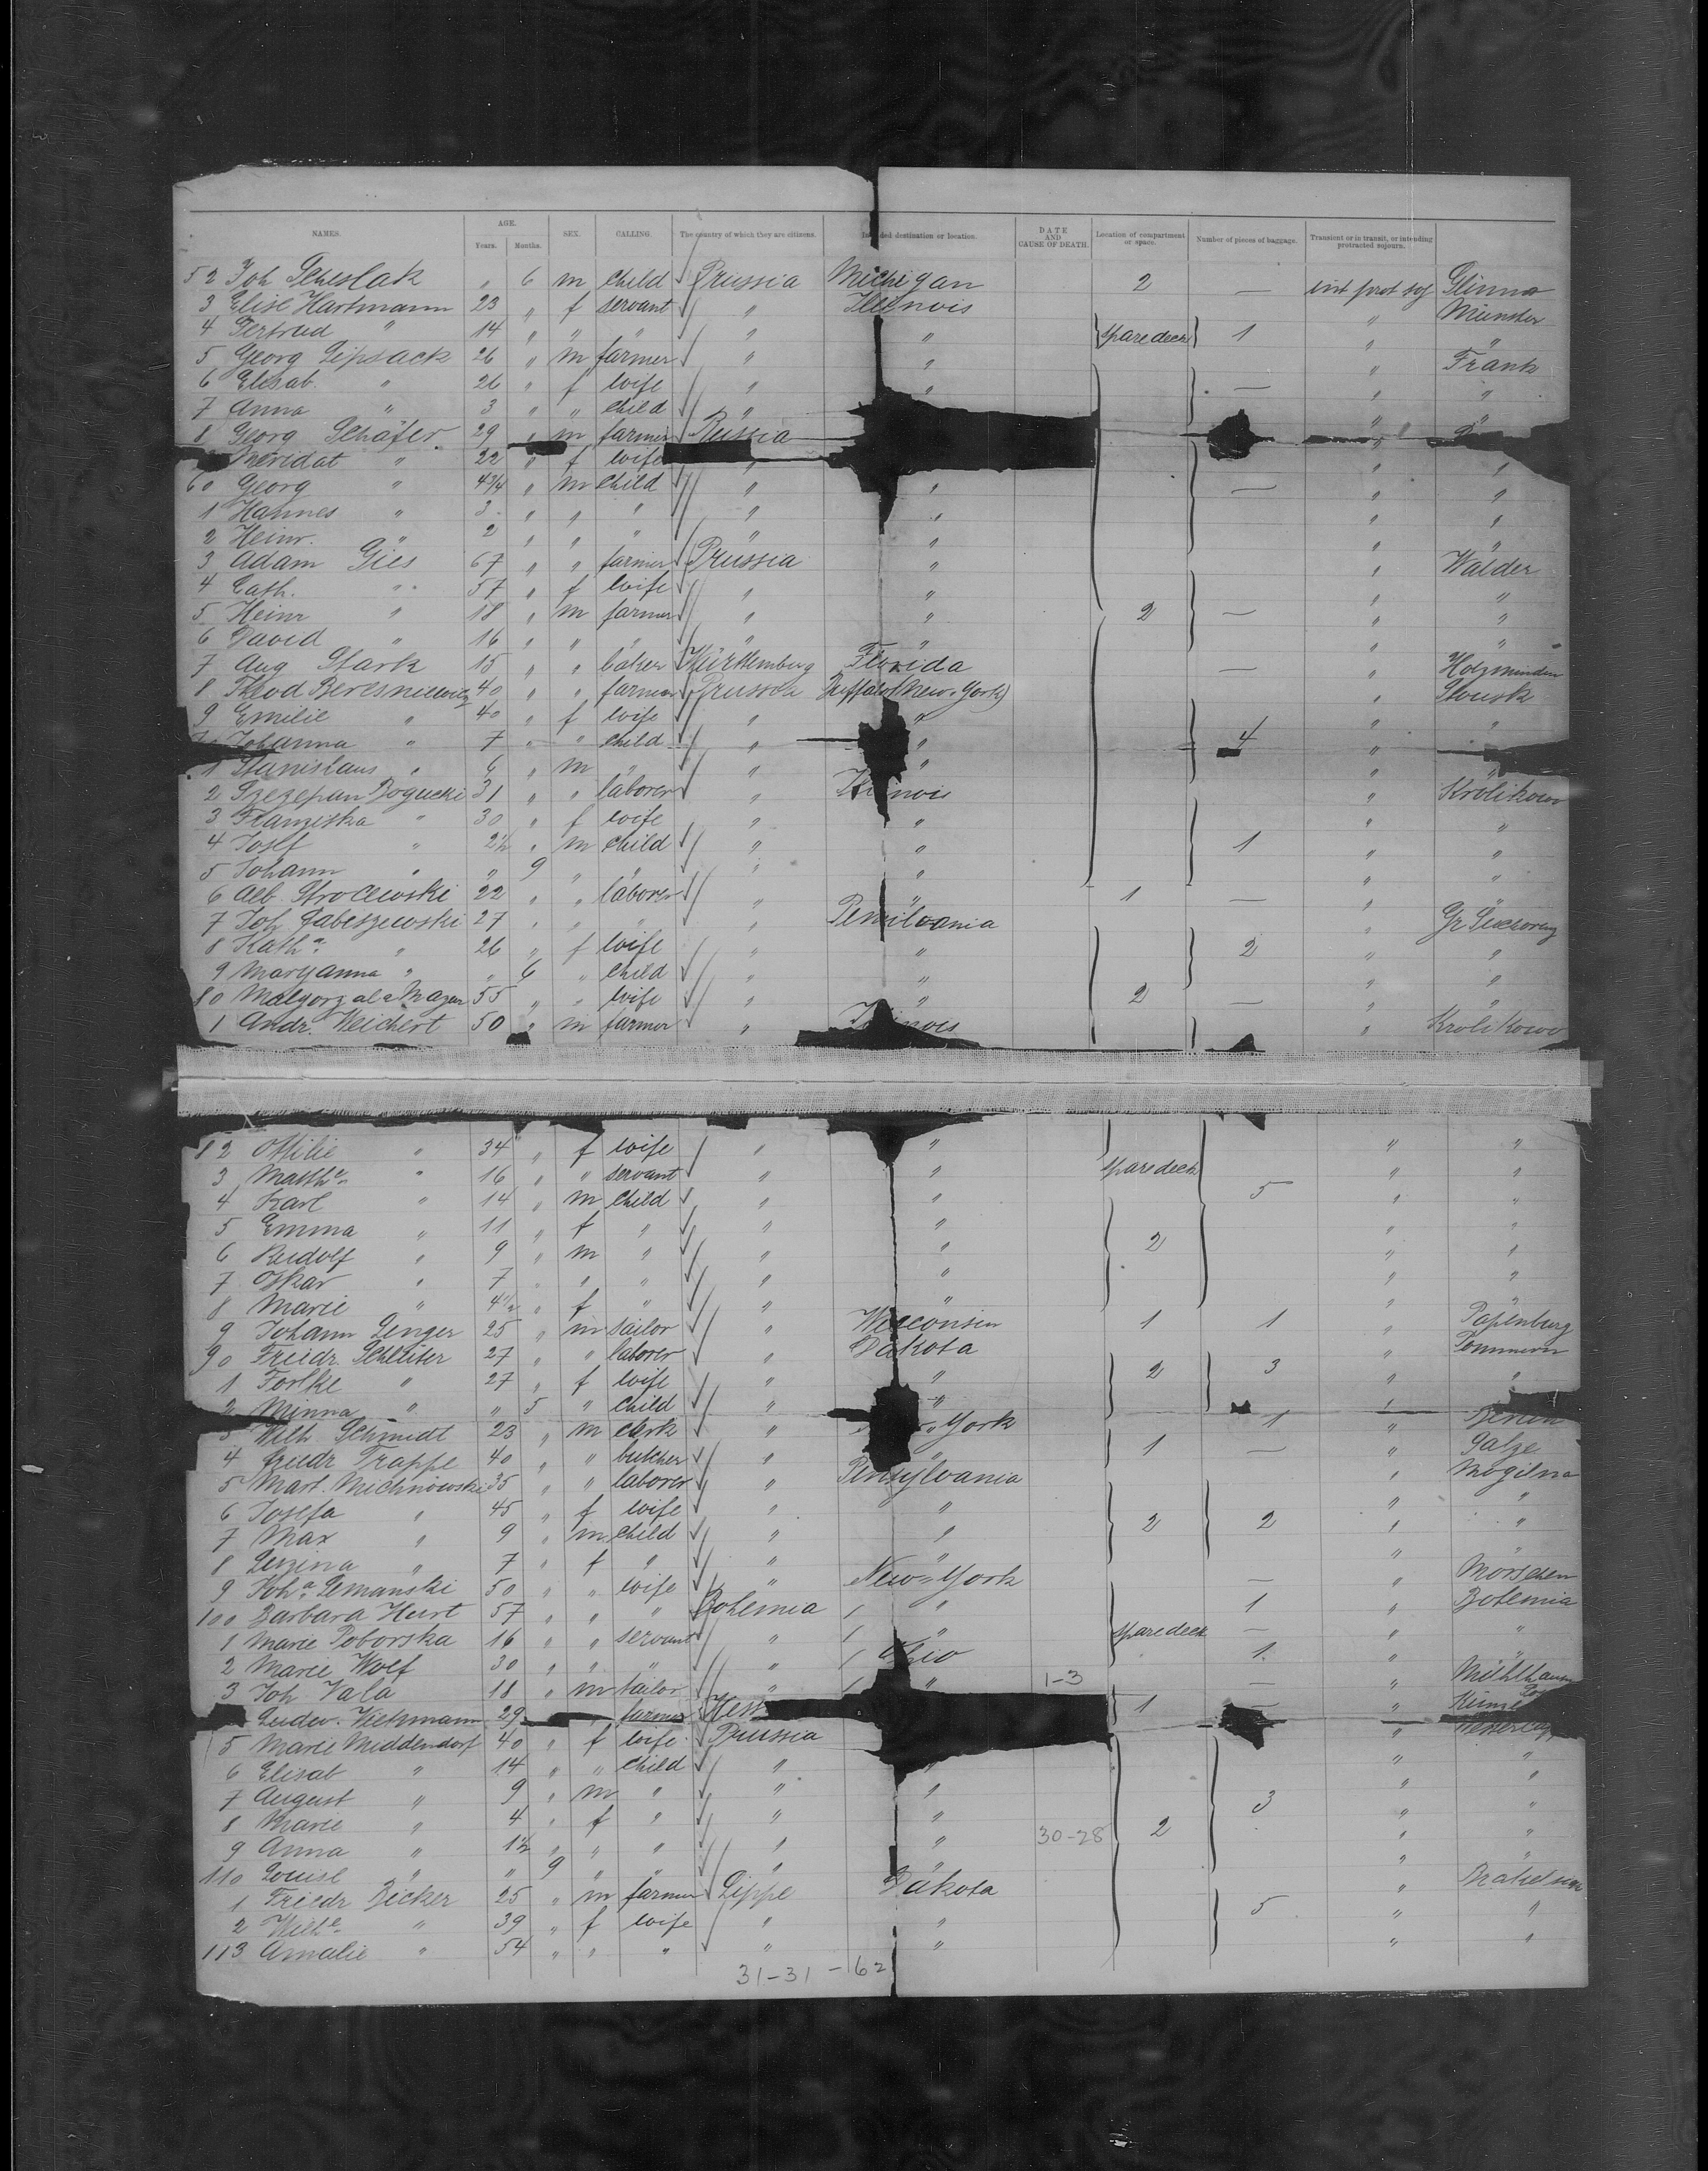 NAMES. AGE. Years. Months. SEX. CALLING. The country of which they are citizens. Intended destination or location. DATE AND CAUSE OF DEATH. Location of compartment or space. Number of pieces of baggage. Transient or in transit, or intending protracted sojourn.
52 Joh " 6 m child Prussia Michigan 2 — int prot soj Glinno
3 Elise Hartmann 23 " f servant " Illinois " Münster
4 Gertrud " 14 " " " " " sparedeck 1 " "
5 Georg Lipsack 26 " m farmer " " " Frank
6 Elisab. " 26 " f wife " " — " "
7 Anna " 3 " " child " " "
8 Georg Schäfer 29 " m farmer Russia "
" 22 " f wife " "
60 Georg " 4 3/4 " m child " " — " "
1 Hannes " 3 " " " " " " "
2 Heinr. " 2 " " " " " " "
3 Adam Gies 67 " " farmer Prussia " " Wälder
4 Cath. " 57 " f wife " " " "
5 Heinr " 18 " m farmer " " 2 — " "
6 David " 16 " " " " " " "
7 Aug Stark 15 " " baker Württemberg Florida — " Holzminden
8 Theod 40 " " farmer Prussia Buffalo (New-York) " Slousk
9 Emilie " 40 " f wife " " " "
Johanna " 7 " " child " " 4 "
1 Stanislaus " 6 " m " " " " "
2 Szezepan Bogucki 31 " " laborer " Illinois " Królikowo
3 Franziska " 30 " f wife " " " "
4 Josef " 2 1/2 " m child " " 1 " "
5 Johann " " 9 " " " " " "
6 Alb. 22 " " laborer " " 1 — " "
7 Joh 27 " " " " Pensilvania " Gr
8 Kath.a " 26 " f wife " " 2 " "
9 Maryanna " " 6 " child " " " "
80 55 " " wife " " 2 — " "
1 Andr. Weichert 50 " m farmer " Illinois " Królikowo
82 Ottilie " 34 " f wife " " " "
3 " 16 " " servant " " sparedeck " "
4 Karl " 14 " m child " " 5 " "
5 Emma " 11 " f " " " " "
6 Rudolf " 9 " m " " " 2 " "
7 Oskar " 7 " " " " " " "
8 Marie " 4 1/2 " f " " " " "
9 Johann Genger 25 " m tailor " Wisconsin 1 1 " Papenburg
90 Friedr. 27 " " laborer " Dakota " Pommern
1 " 27 " f wife " " 2 3 " "
2 Minna " " 5 " child " " "
3 Wilh Schmidt 23 " m clerk " York 1 " Berlin
4 Friedr Trappe 40 " " butcher " " 1 — "
5 Mart. Michnowski 35 " " laborer " Pensylvania " Mogilno
6 Josefa " 45 " f wife " " " "
7 Max " 9 " m child " " 2 2 " "
8 " 7 " f " " " " "
9 Joh.a 50 " " wife " New-York — " Mörschen
100 Barbara Hurt 57 " " " Bohemia " 1 " Bohemia
1 Marie Poborska 16 " " servant " " sparedeck — " "
2 Marie Wolf 30 " " " " Ohio 1 " "
3 Joh Vala 18 " m tailor " " 1-3 — "
Ludw. 29 " farmer Hess 1 — "
5 Marie Middendorf 40 " f wife Prussia "
6 Elisab " 14 " " child " " "
7 August " 9 " m " " " 3 " "
8 Marie " 4 " f " " " 2 " "
9 Anna " 1 1/2 " " " " " 30-28 " "
110 Louise " " 9 " " " " " "
1 Friedr Bicker 25 " m farmer Lippe Dakota "
2 Wilh.e " 39 " f wife " " 5 " "
113 Amalie " 54 " " " " " " "
31-31 - 62